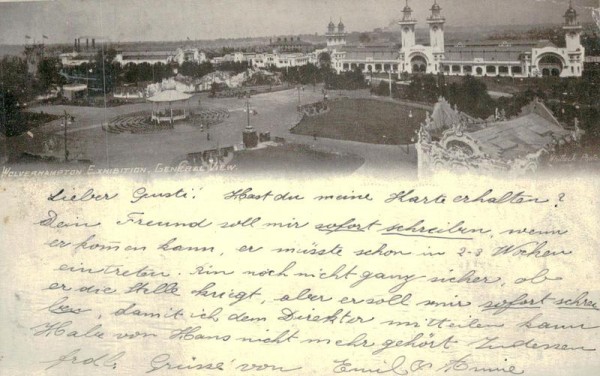 WOLVERHAMPTON EXHIBITION, GENERAL VIEW.
Lieber Gusti! Hast du meine Karte erhalten?
Dein Freund soll mir sofort schreiben, wenn
er kommen kann, er müsste schon in 2-3 Wochen
eintreten. Bin noch nicht ganz sicher, ob
er die Stelle kriegt, aber er soll mir sofort schrei
ben, damit ich dem Direktor mitteilen kann
Habe von Hans nicht mehr gehört Indessen
frdl. Grüsse von Emil & Annie